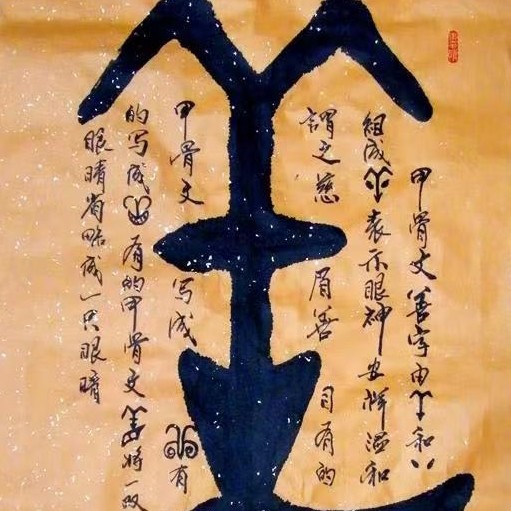 甲骨文善字由和
组成表示眼神安祥温和
谓之慈眉善目有的
甲骨文写成有
的写成有的甲骨文将一双
眼睛省略成一只眼睛